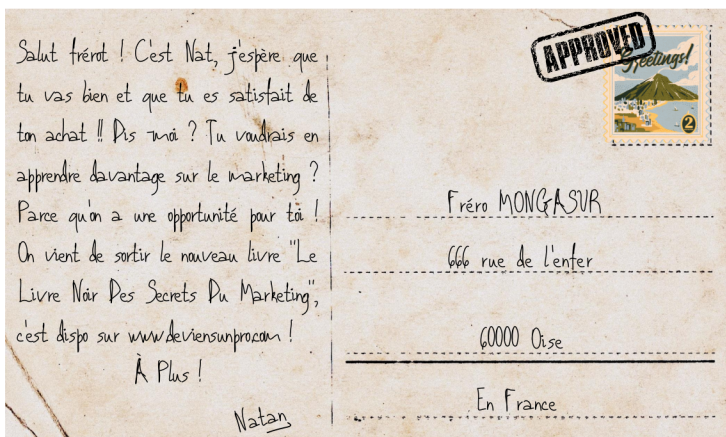 Salut frérot ! C'est Nat, j'espère que
tu vas bien et que tu es satisfait de
ton achat !! Dis moi ? Tu voudrais en
apprendre davantage sur le marketing ?
Parce qu'on a une opportunité pour toi !
On vient de sortir le nouveau livre "Le
Livre Noir Des Secrets Du Marketing",
c'est dispo sur www.deviensunpro.com !
À Plus !
Natan
APPROVED
Greetings!
2
Fréro MONGASUR
666 rue de l'enfer
60000 Oise
En France